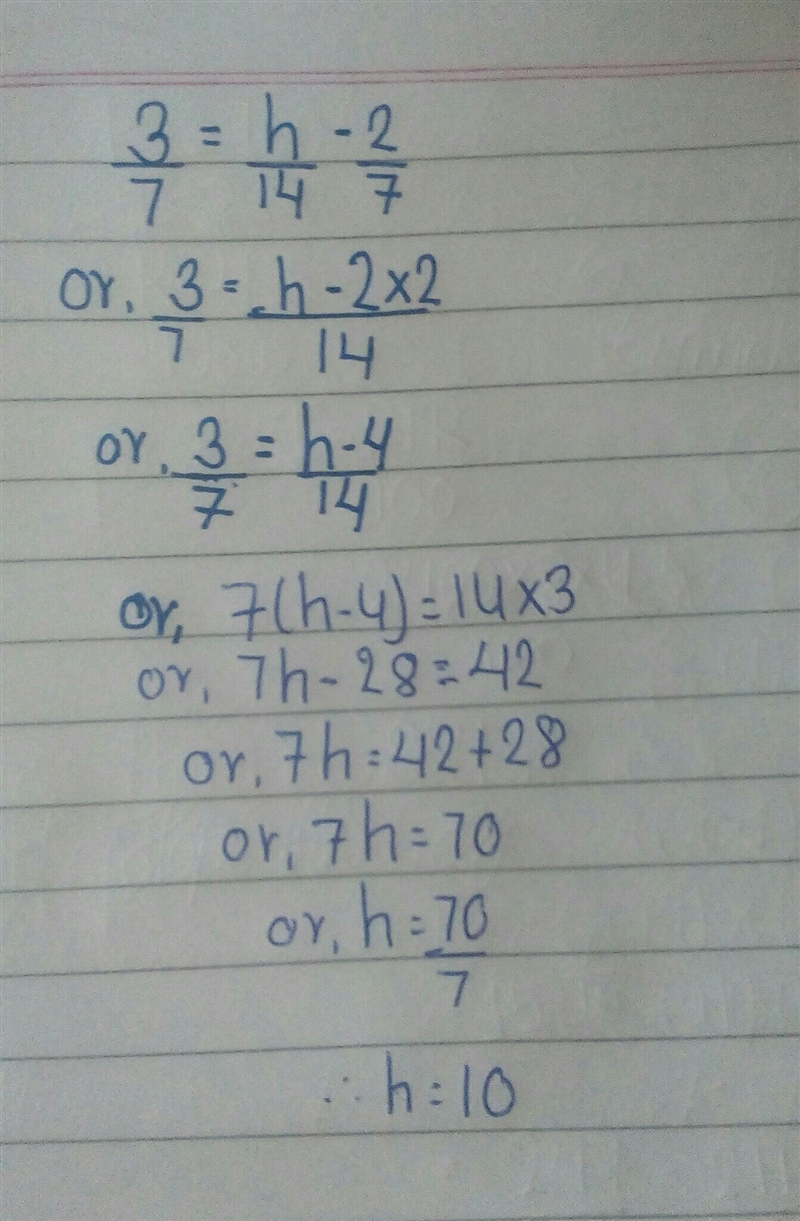 3/7 = h/14 - 2/7
or, 3/7 = h - 2×2/14
or, 3/7 = h-4/14
or, 7(h-4) = 14×3
or, 7h - 28 = 42
or, 7h = 42+28
or, 7h = 70
or, h = 70/7
∴ h = 10